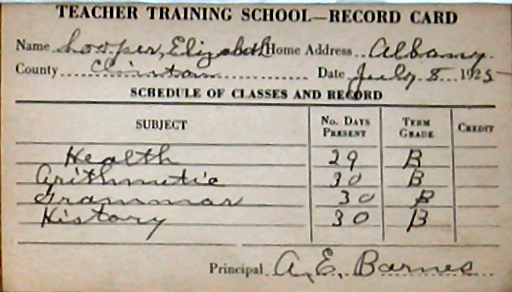 TEACHER TRAINING SCHOOL—RECORD CARD
Name Looper, Elizabeth Home Address Albany.
County Clinton Date July 8 1925
SCHEDULE OF CLASSES AND RECORD
SUBJECT No. Days Present Term Grade Credit
Health 29 B
Arithmetic 30 B
Grammar 30 B
History 30 B
Principal A. E. Barnes